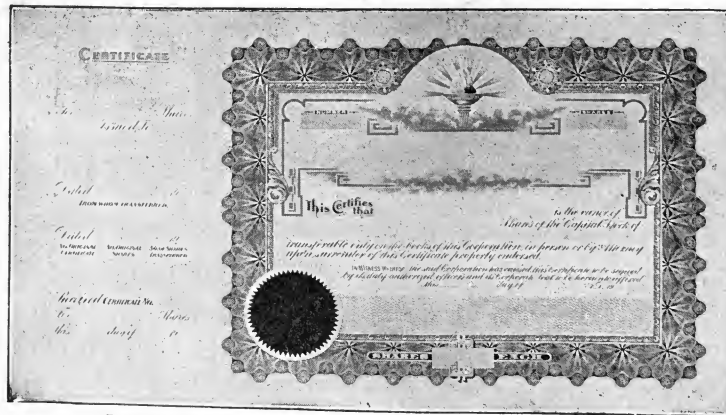 CERTIFICATE
For Shares
Issued to
Dated 19
FROM WHOM TRANSFERRED
Dated 19
NO. ORIGINAL CERTIFICATE
NO. ORIGINAL SHARES
NO. OF SHARES TRANSFERRED
Received CERTIFICATE No.
For Shares
this day of 19
NUMBER
SHARES
This Certifies that
is the owner of
Shares of the Capital Stock of
transferable only on the books of this Corporation in person or by Attorney
upon surrender of this Certificate properly endorsed.
IN WITNESS WHEREOF the said Corporation has caused this Certificate to be signed
by its duly authorized officers and its Corporate Seal to be hereunto affixed
this day of A.D. 19
SHARES EACH